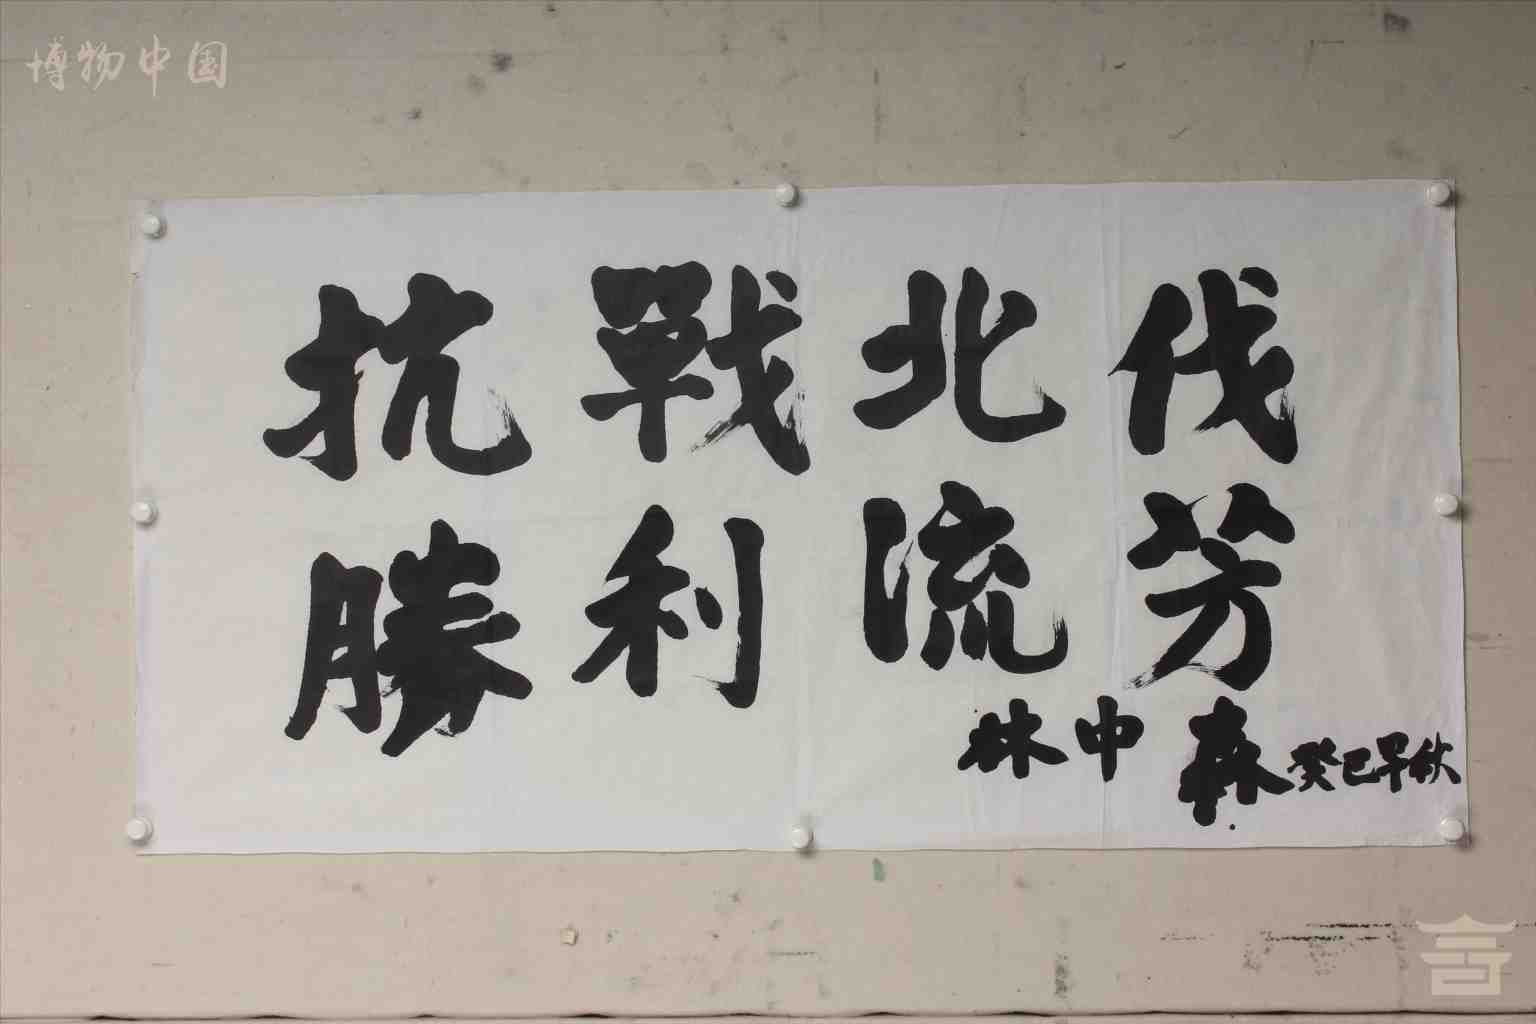 博物中国
抗戰北伐
勝利流芳
林中森 癸巳早秋